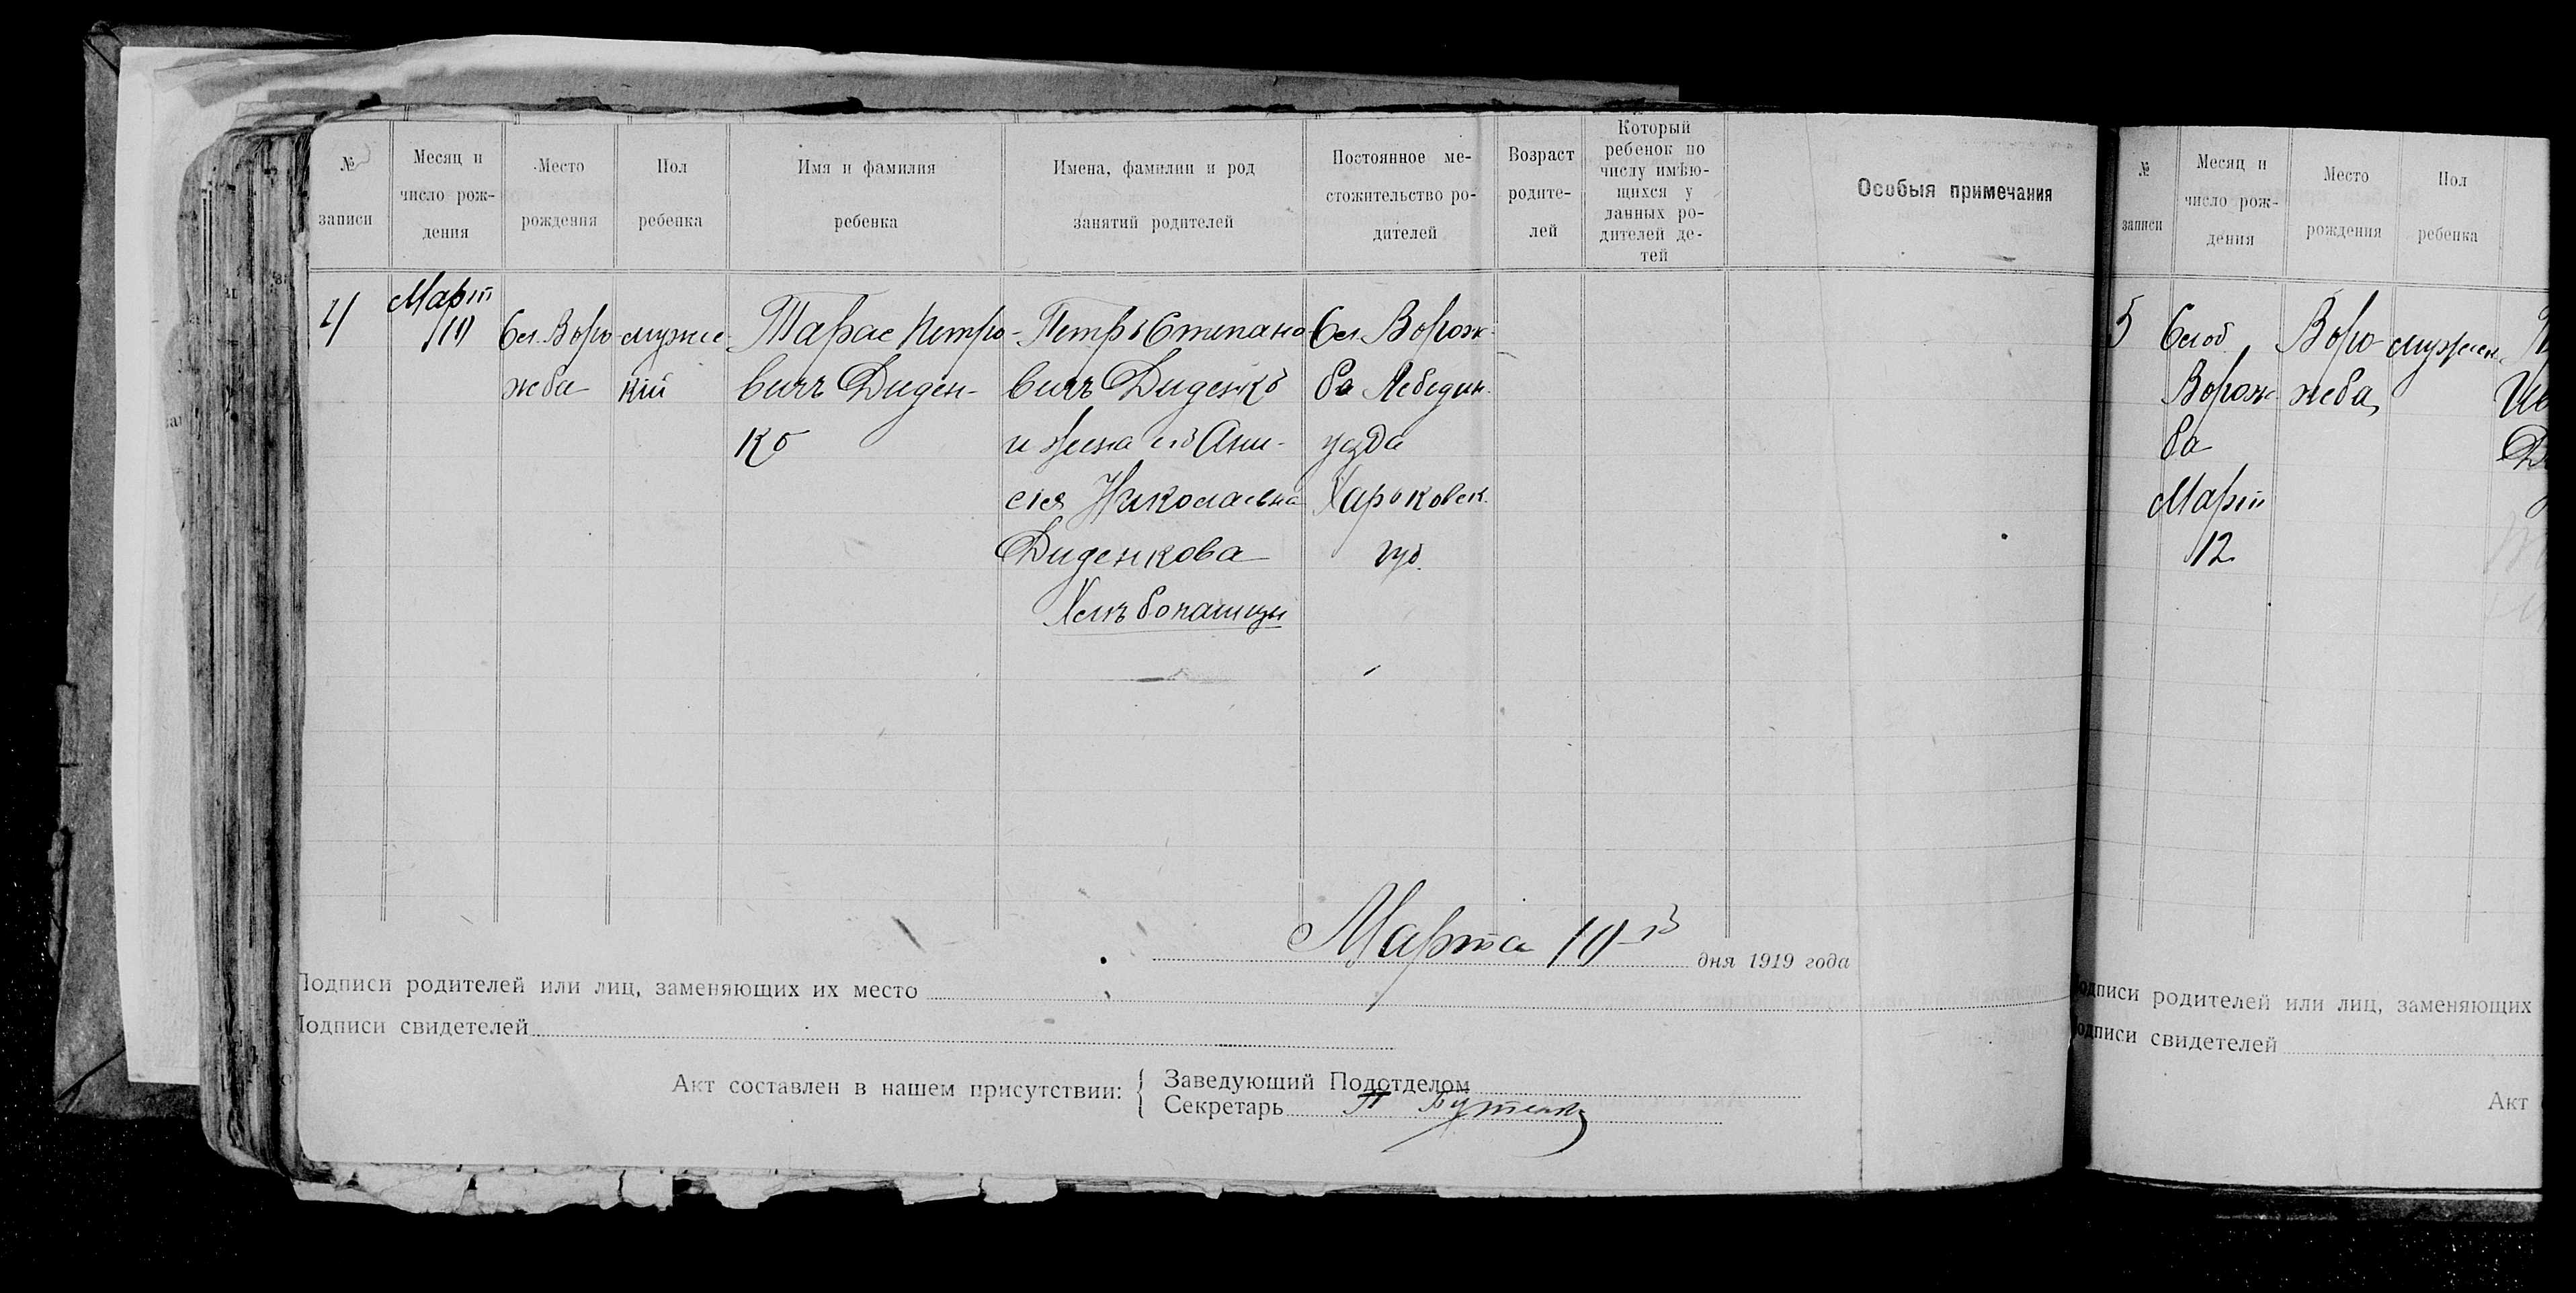 № записи
Месяц и число рождения
Место рождения
Пол ребенка
Имя и фамилия ребенка
Имена, фамилии и род занятий родителей
Постоянное местожительство родителей
Возраст родителей
Который ребенок по числу имѣющихся у данных родителей детей
Особыя примечания
4
Март
10
Сл. Воро-
жба
мужс-
кій
Тарас Петро-
вичъ Диден-
ко
Петръ Степано-
вичъ Диденко
и жена его Ани-
сія Николаевна
Диденкова
Хлѣбопашцы
Сл. Ворож-
ба Лебедин.
уезда
Харьковск.
губ.
Марта 10-го дня 1919 года
Подписи родителей или лиц, заменяющих их место
Подписи свидетелей
Акт составлен в нашем присутствии:
Заведующий Подотделом
Секретарь П Бутенко
№ записи
Месяц и число рождения
Место рождения
Пол ребенка
5
Слоб
Ворож
ба
Март
12
Воро-
жба
мужеск.
Подписи родителей или лиц, заменяющих
Подписи свидетелей
Акт